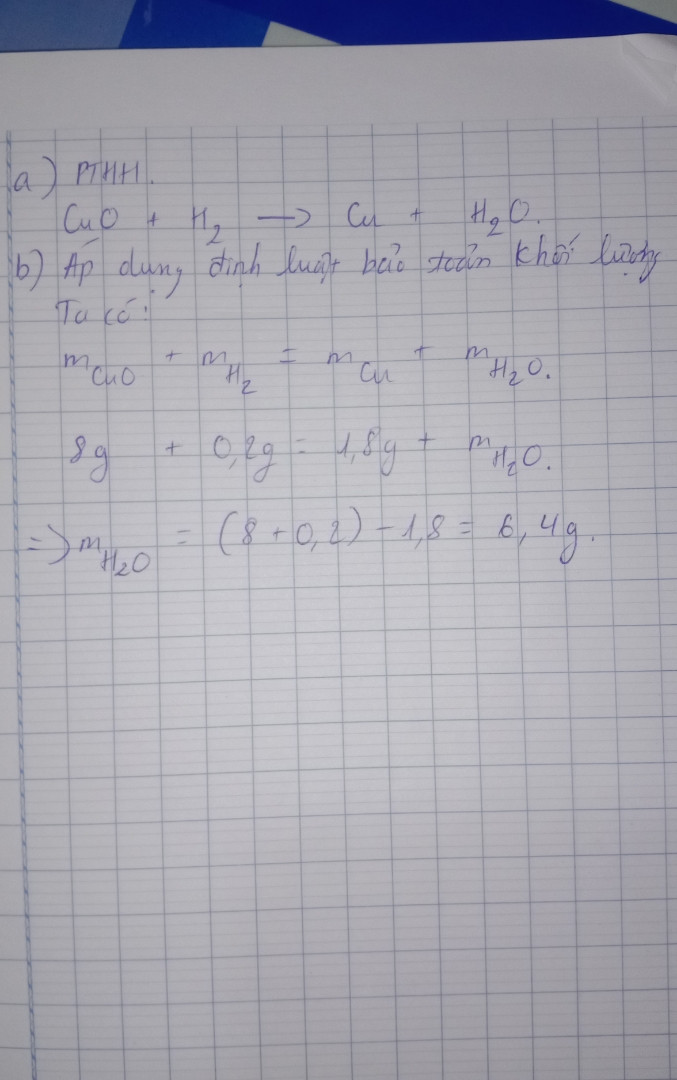 a) PTHH.
CuO + H₂ → Cu + H₂O.
b) Áp dụng định luật bảo toàn khối lượng
Ta có:
m_CuO + m_H₂ = m_Cu + m_H₂O.
8g + 0,2g = 1,8g + m_H₂O.
=> m_H₂O = (8 + 0,2) - 1,8 = 6,4g.